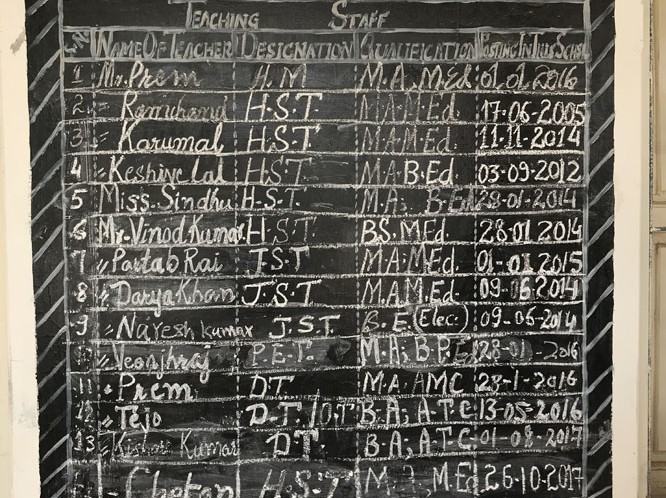 TEACHING STAFF
S.No NAME OF TEACHER DESIGNATION QUALIFICATION POSTING IN THIS SCHOOL
1 Mr. Prem H.M M.A, M.Ed 01.01.2016
2 = Ramchand H.S.T M.A M.Ed. 17-06-2005
3 = Karumal H.S.T M.A M.Ed. 11-11-2014
4 = Keshive Lal H.S.T M.A B.Ed 03-09-2012
5 Miss. Sindhu H.S.T. M.A; B.Ed 28-01-2014
6 Mr. Vinod Kumar H.S.T BS. M.Ed. 28-01 2014
7 = Partab Rai J.S.T M.A; M.Ed. 01-01 2015
8 = Darya Khan J.S.T M.A M.Ed 09-06 2014
9 = Naresh kumar J.S.T. B.E (Elec:) 09-06-2014
P.E.T. M.A; B.P.Ed 28-01-2016
11 = Prem D.T. M.A AMC 28-1-2016
12 = Tejo D.T. B.A; A.T.C 13-05-2016
13 = Kishor Kumar D.T. B.A; A.T.C. 01-08-2017
Chetan H.S.T M.A, M.Ed 26-10-2017